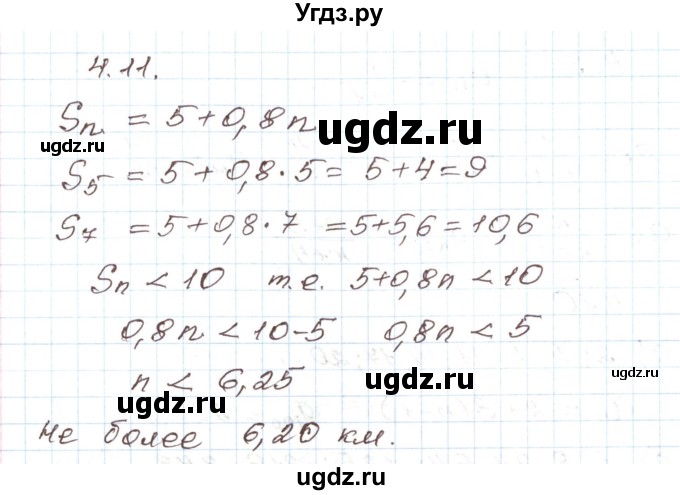 Угдз.ру
4.11.
Sₙ = 5 + 0,8n
ugdz.ru
ugdz.ru
ugdz.ru
S₅ = 5 + 0,8 · 5 = 5 + 4 = 9
S₇ = 5 + 0,8 · 7 = 5 + 5,6 = 10,6
Sₙ < 10 т.е. 5 + 0,8n < 10
0,8n < 10 - 5 0,8n < 5
n < 6,25
ugdz.ru
ugdz.ru
ugdz.ru
Не более 6,20 км.
ugdz.ru
ugdz.ru